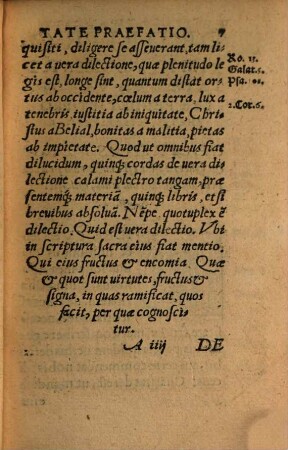 TATE PRAEFATIO. 7
quisiti, diligere se asseuerant, tam li
cet a vera dilectione, quæ plenitudo le
gis est, longe sint, quantum distat or-
tus ab occidente, cœlum a terra, lux a
tenebris, iustitia ab iniquitate, Chri-
stus a Belial, bonitas a malitia, pietas
ab impietate. Quod ut omnibus fiat
dilucidum, quinq; cordas de vera di-
lectione calami plectro tangam, præ
sentemq; materiã, quinq; libris, et si
breuibus absoluã. Nẽpe quotuplex ẽ
dilectio. Quid est vera dilectio. Vbi
in scriptura sacra eius fiat mentio.
Qui eius fructus & encomia. Quæ
& quot sunt virtutes, fructus &
signa, in quas ramificat, quos
facit, per quæ cognosci
tur.
A iiij DE
Ro. 13.
Galat. 5.
Psa.
2. Cor. 6.